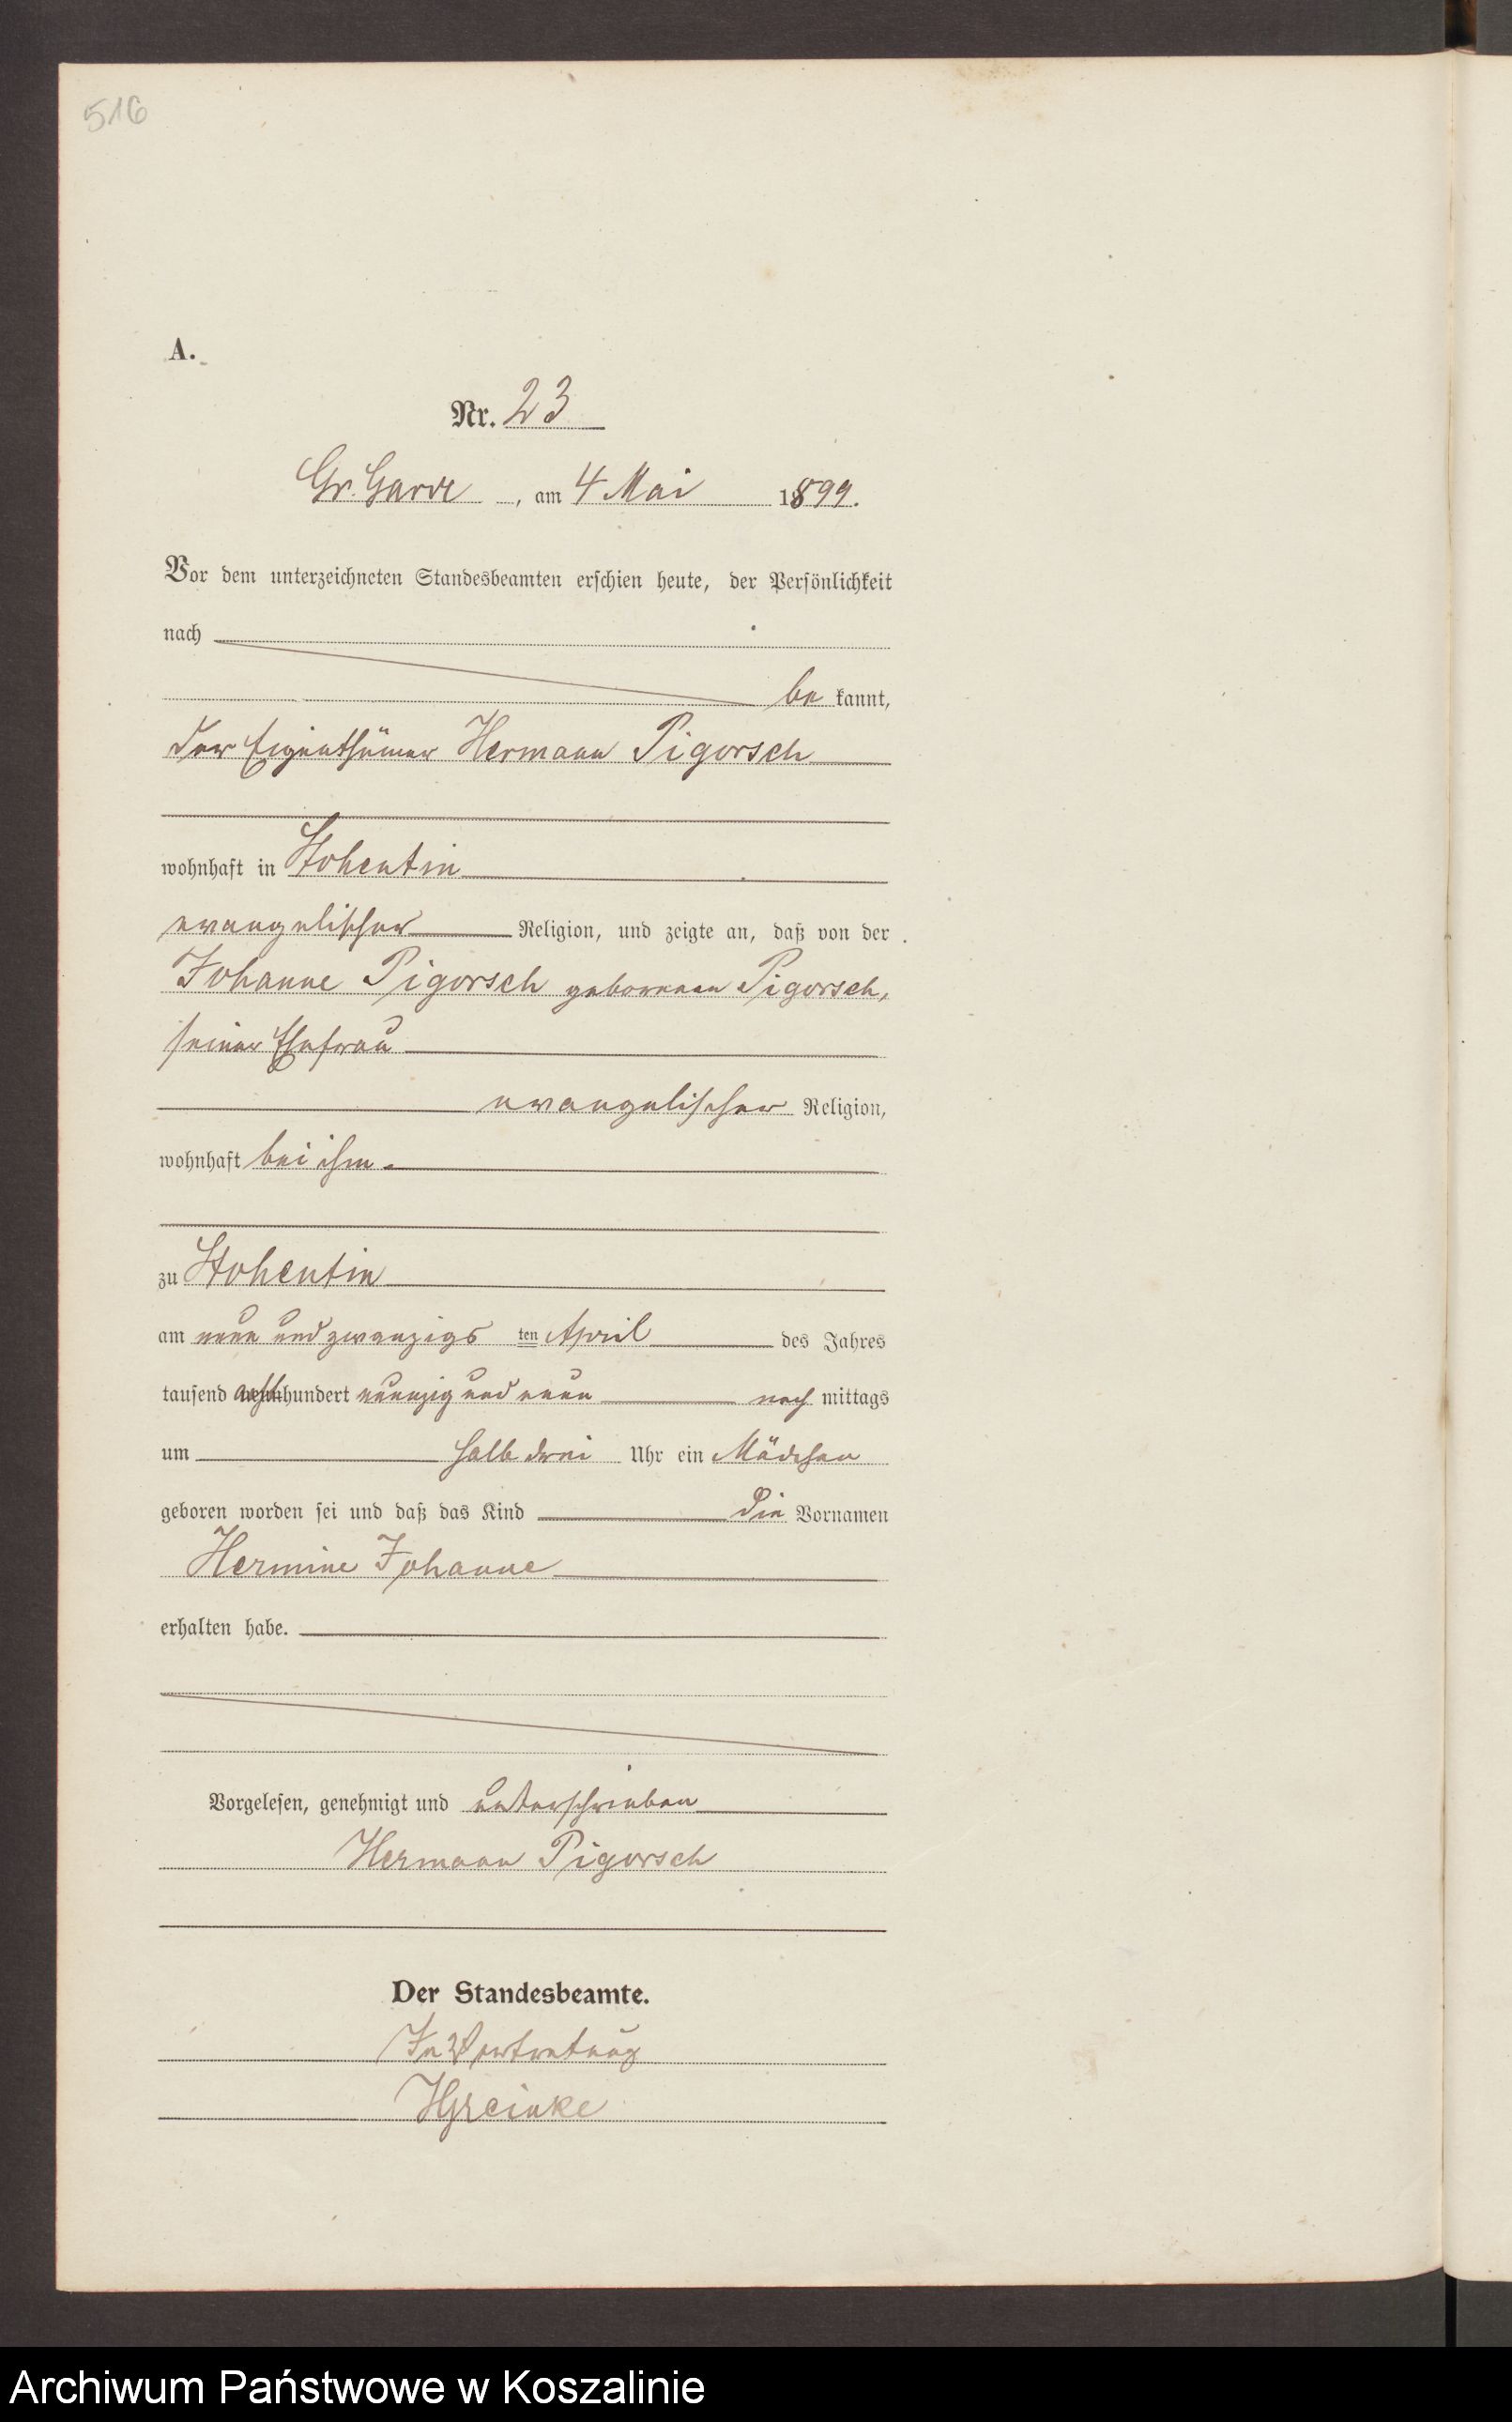 516
A.
Nr. 23
Gr. Garde, am 4 Mai 1899.
Vor dem unterzeichneten Standesbeamten erschien heute, der Persönlichkeit
nach
be kannt,
der Eigenthümer Hermann Pigorsch
wohnhaft in Stohentin
evangelischer Religion, und zeigte an, daß von der
Johanne Pigorsch geborenen Pigorsch,
seiner Ehefrau
evangelischer Religion,
wohnhaft bei ihm
zu Stohentin
am neun und zwanzigs ten April des Jahres
tausend acht hundert neunzig und neun nach mittags
um halb drei Uhr ein Mädchen
geboren worden sei und daß das Kind die Vornamen
Hermine Johanne
erhalten habe.
Vorgelesen, genehmigt und unterschrieben
Hermann Pigorsch
Der Standesbeamte.
In Vertretung
Archiwum Państwowe w Koszalinie